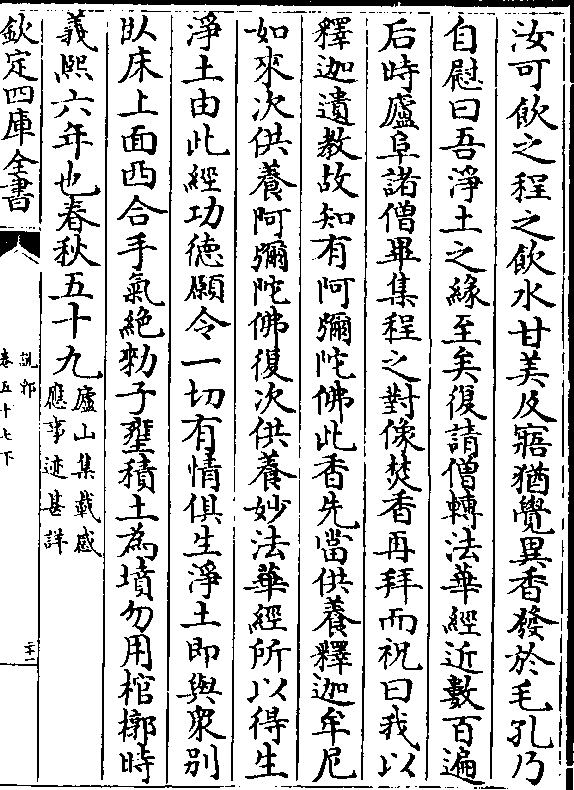 汝可飲之程之飲水甘美及寤猶覺異香發於毛孔乃
自慰曰吾淨土之緣至矣復請僧轉法華經近數百遍
后時廬阜諸僧畢集程之對像焚香再拜而祝曰我以
釋迦遺教故知有阿彌陀佛此香先當供養釋迦牟尼
如來次供養阿彌陀佛復次供養妙法華經所以得生
淨土由此經功德願令一切有情俱生淨土即與衆别
臥床上面西合手氣絶勑子堲積土為墳勿用棺槨時
義熙六年也春秋五十九廬山集載感
應事迹甚詳
欽定四庫全書
説郛
卷五十七下